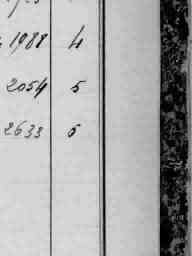 1988 4
2054 5
2633 5